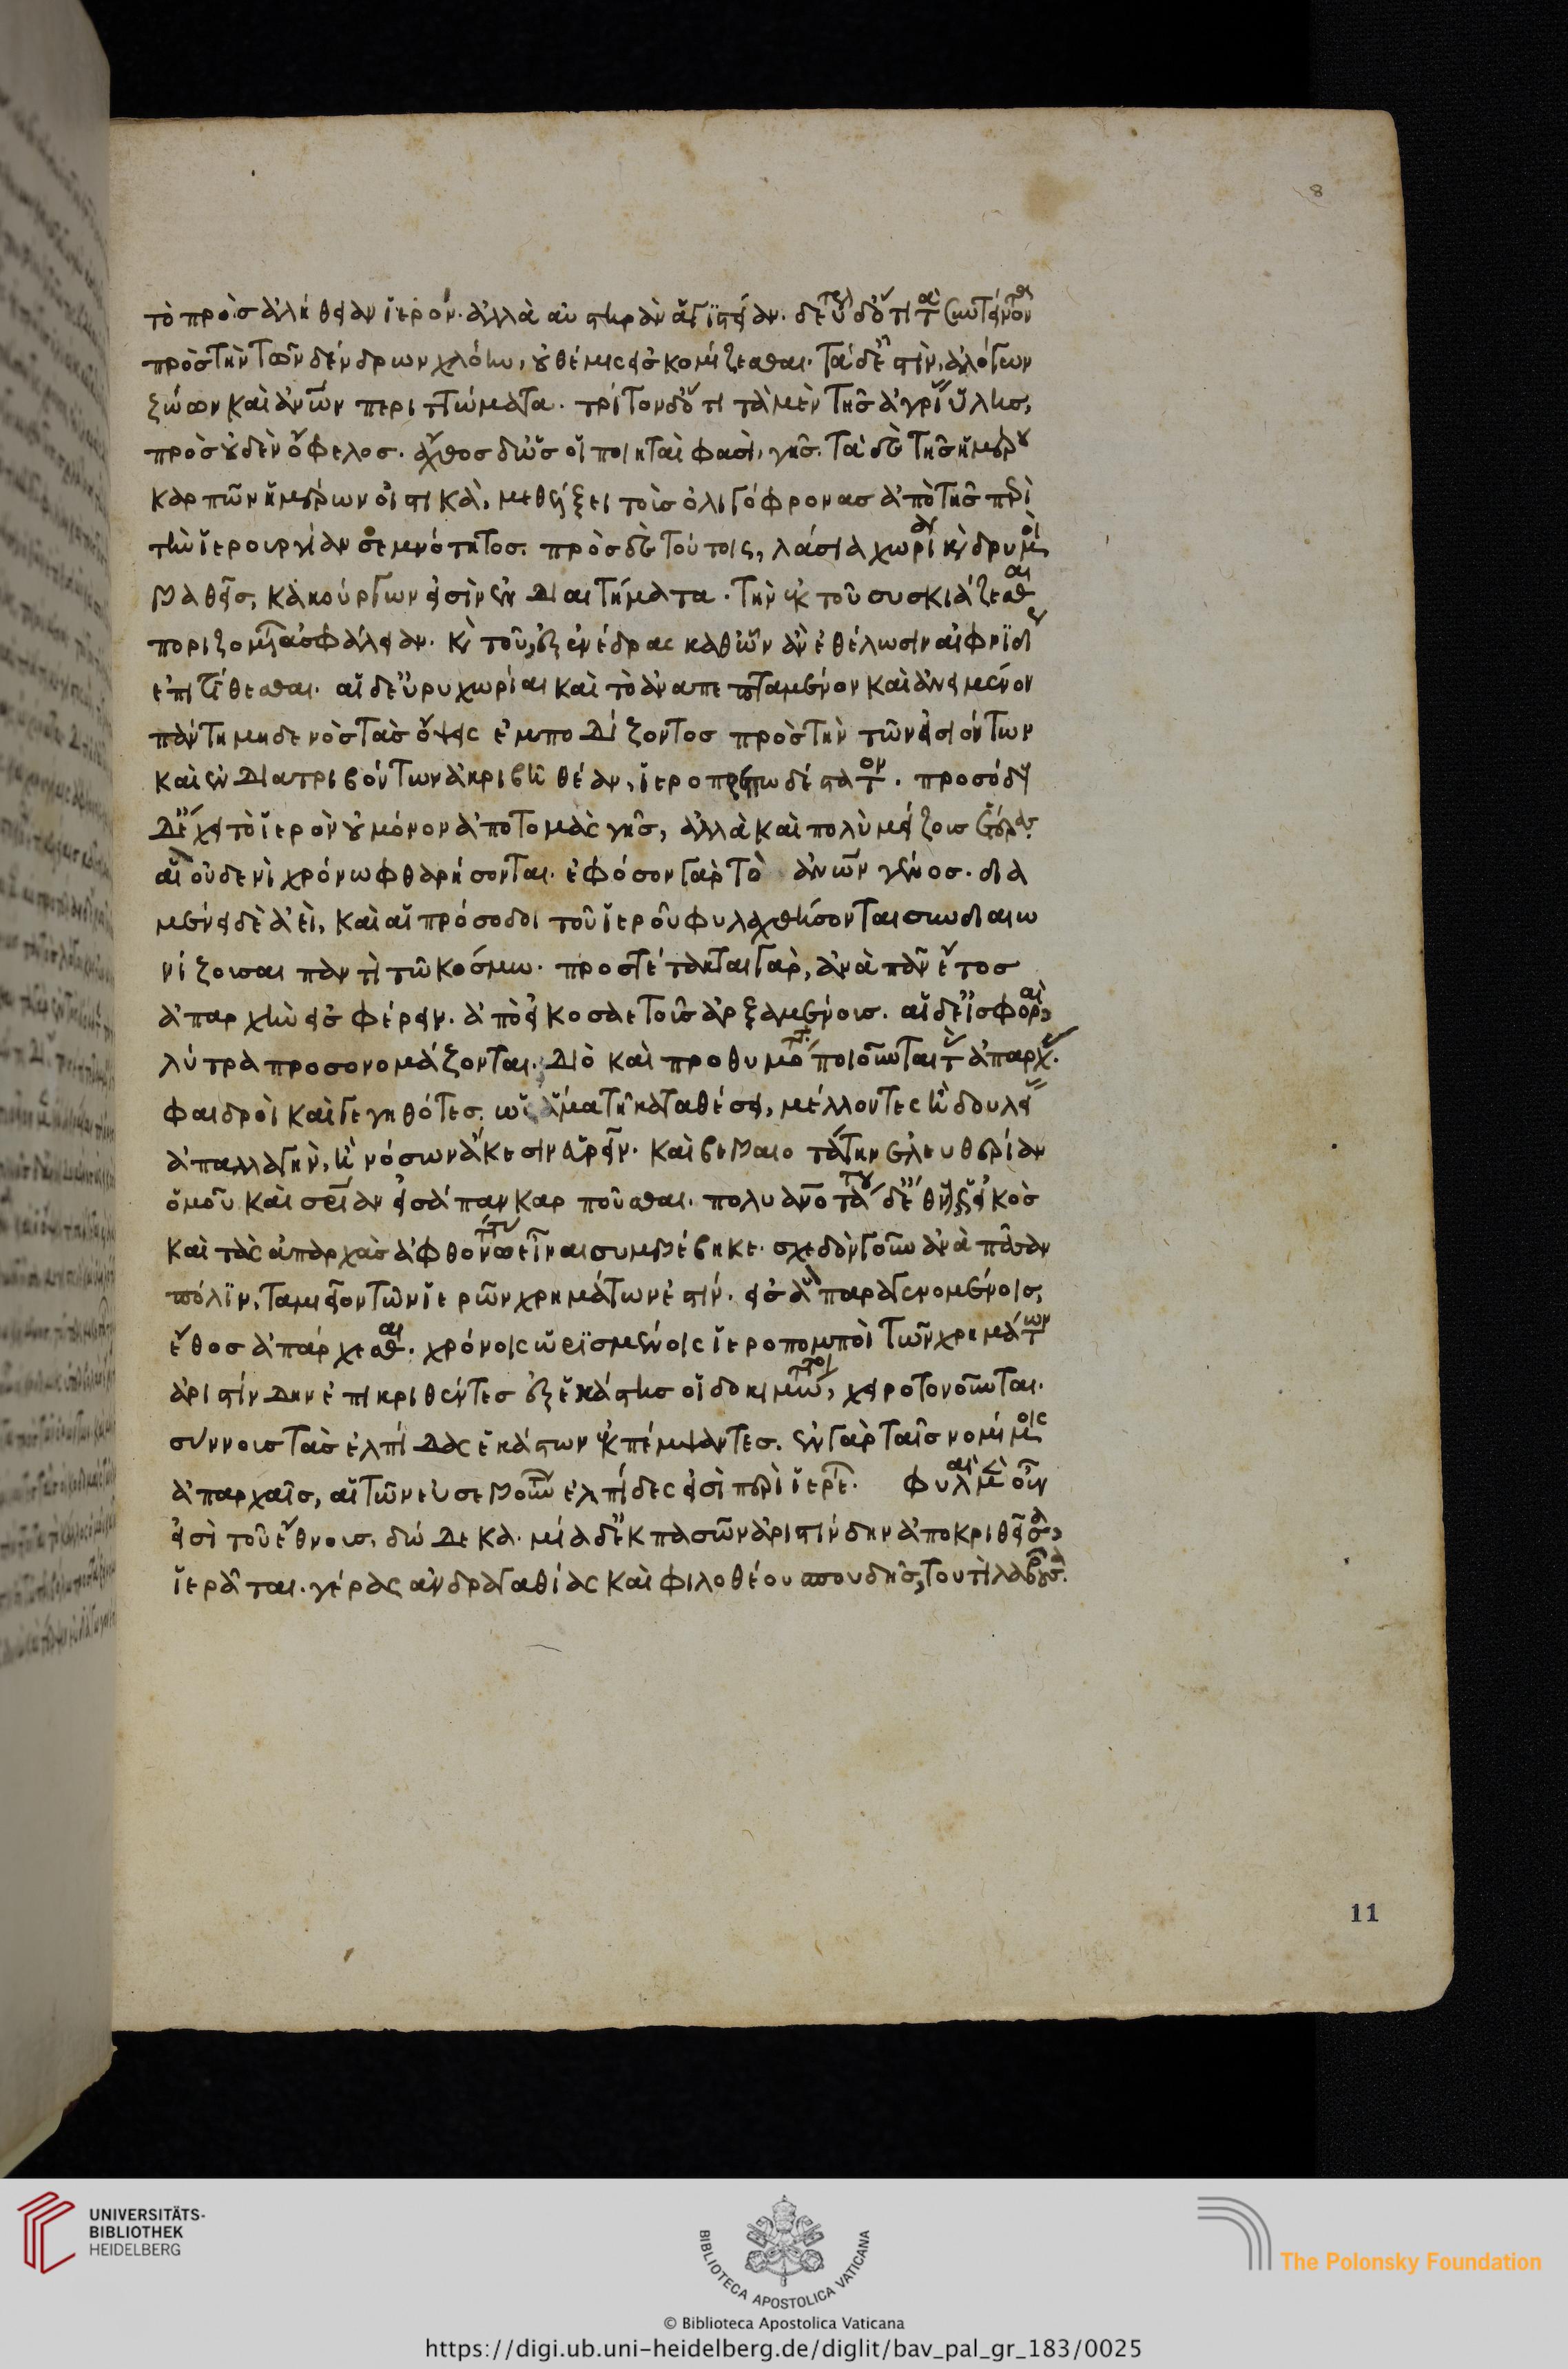 8
τὸ πρὸς ἀλήθειαν ἱερόν· ἀλλὰ αὐστηρὰν ἁγιστείαν· δεύτερον δὲ ὅτι τὰ συντείνοντα
πρὸς τὴν τῶν δένδρων χλόην, οὐ θέμις εἰσκομίζεσθαι· τὰ δέ ἐστιν, ἀλόγων
ζώων καὶ ἀνθρώπων περιττώματα· τρίτον δὲ ὅτι τὰ μὲν τῆς ἀγρίου ὕλης,
πρὸς οὐδὲν ὄφελος· ἄχθος δὲ ὡς οἱ ποιηταὶ φασὶ, γῆς. τὰ δὲ τῆς ἡμέρου
καρπῶν ἡμέρων οἰστικὰ, μεθέξει τοὺς ὀλιγόφρονας ἀπὸ τῆς περὶ
τὴν ἱερουργίαν σεμνότητος. πρὸς δὲ τούτοις, λάσια χωρία καὶ δρυμοὶ
βαθεῖς, κακούργων εἰσὶν ἐνδιαιτήματα· τὴν ἐκ τοῦ συσκιάζεσθαι
ποριζομένων ἀσφάλειαν· καὶ τοῦ, ἐξ ἐνέδρας καθ' ὧν ἂν ἐθέλωσιν αἰφνιδίους
ἐπιτίθεσθαι. αἱ δὲ εὐρυχωρίαι καὶ τὸ ἀναπεπταμένον καὶ ἀνειμένον
πάντη μηδενὸς τὰς ὄψεις ἐμποδίζοντος πρὸς τὴν τῶν εἰσιόντων
καὶ ἐνδιατριβόντων ἀκριβῆ θέαν, ἱεροπρεπωδέστατον. προσόδους
δὲ ἔχει τὸ ἱερὸν οὐ μόνον ἀποτομὰς γῆς, ἀλλὰ καὶ πολὺ μείζους ἑτέρας·
αἳ οὐδενὶ χρόνω φθαρήσονται. ἐφόσον γὰρ τὸ ἀνθρώπων γένος· δια
μένει δὲ ἀεὶ, καὶ αἱ πρόσοδοι τοῦ ἱεροῦ φυλαχθήσονται συνδιαιω
νίζουσαι παντὶ τῶ κόσμω. προστέτακται γὰρ, ἀνὰ πᾶν ἔτος
ἀπαρχὴν εἰσφέρειν. ἀπὸ εἰκοσαετοῦς ἀρξαμένους. αἱ δὲ εἰσφοραὶ
λύτρα προσονομάζονται. διὸ καὶ προθυμότατα ποιοῦνται τὰς ἀπαρχάς.
φαιδροὶ καὶ γεγηθότες. ὡς ἅμα τῆ καταθέσει, μέλλοντες ἢ δουλείας
ἀπαλλαγὴν, ἢ νόσων ἄκεσιν εὑρεῖν· καὶ βεβαιοτάτην ἐλευθερίαν
ὁμοῦ καὶ σωτηρίαν εἰσάπαν καρποῦσθαι. πολυανθρωποτάτου δὲ ἔθνους ὡς εἰκὸς
καὶ τὰς ἀπαρχὰς ἀφθονωτάτας εἶναι συμβέβηκε. σχεδὸν γοῦν ἀνὰ πᾶσαν
πόλιν, ταμιεῖον τῶν ἱερῶν χρημάτων ἐστίν. εἰς ἃ παραγενομένοις,
ἔθος ἀπάρχεσθαι. χρόνοις ὡρισμένοις ἱεροπομποὶ τῶν χρημάτων
ἀριστίνδην ἐπικριθέντες ἐξ ἑκάστης οἱ δοκιμώτατοι, χειροτονοῦνται.
σύννους τὰς ἐλπίδας ἑκάστων ἐκπέμψαντες. ἐν γὰρ ταῖς νομίμοις
ἀπαρχαῖς, αἱ τῶν εὐσεβούντων ἐλπίδες εἰσὶ περὶ ἱερέων. φυλαὶ μὲν οὖν
εἰσὶ τοῦ ἔθνους, δώδεκα. μία δὲ ἐκ πασῶν ἀριστίνδην ἀποκριθεῖσα,
ἱερᾶται. γέρας ἀνδραγαθίας καὶ φιλοθέου σπουδῆς, τουτὶ λαβοῦσα.
11
UNIVERSITÄTS-
BIBLIOTHEK
HEIDELBERG
BIBLIOTECA APOSTOLICA VATICANA
The Polonsky Foundation
© Biblioteca Apostolica Vaticana
https://digi.ub.uni-heidelberg.de/diglit/bav_pal_gr_183/0025